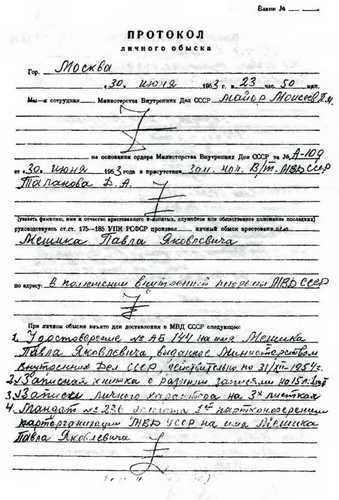 Бланк №
ПРОТОКОЛ
личного обыска
Гор. Москва
30 июня 1953 г. в 23 час. 50 мин.
Мы—я сотрудник Министерства Внутренних Дел СССР майор Моисеев
на основании ордера Министерства Внутренних Дел СССР за № А-109
от 30 июня 1953 года в присутствии зам. нач. В/т. МВД СССР
Таланова Д. А.
(указать фамилию, имя и отчество арестованного и понятых, служебное или общественное положение последних)
руководствуясь ст.ст. 175—185 УПК РСФСР произвел личный обыск арестованного
Мешика Павла Яковлевича
по адресу: В помещении внутренней тюрьмы МВД СССР
При личном обыске взято для доставления в МВД СССР следующее:
1. Удостоверение № АБ 144 на имя Мешика
Павла Яковлевича, выданное Министерством
Внутренних Дел СССР, действительно по 31/XII-1954г.
2. Записная книжка с разными записями на 150 листах
3. Записки личного характера на 3х листках
4. Мандат № 236 делегата 1ой партконференции
парторганизации МВД УССР на имя Мешика
Павла Яковлевича